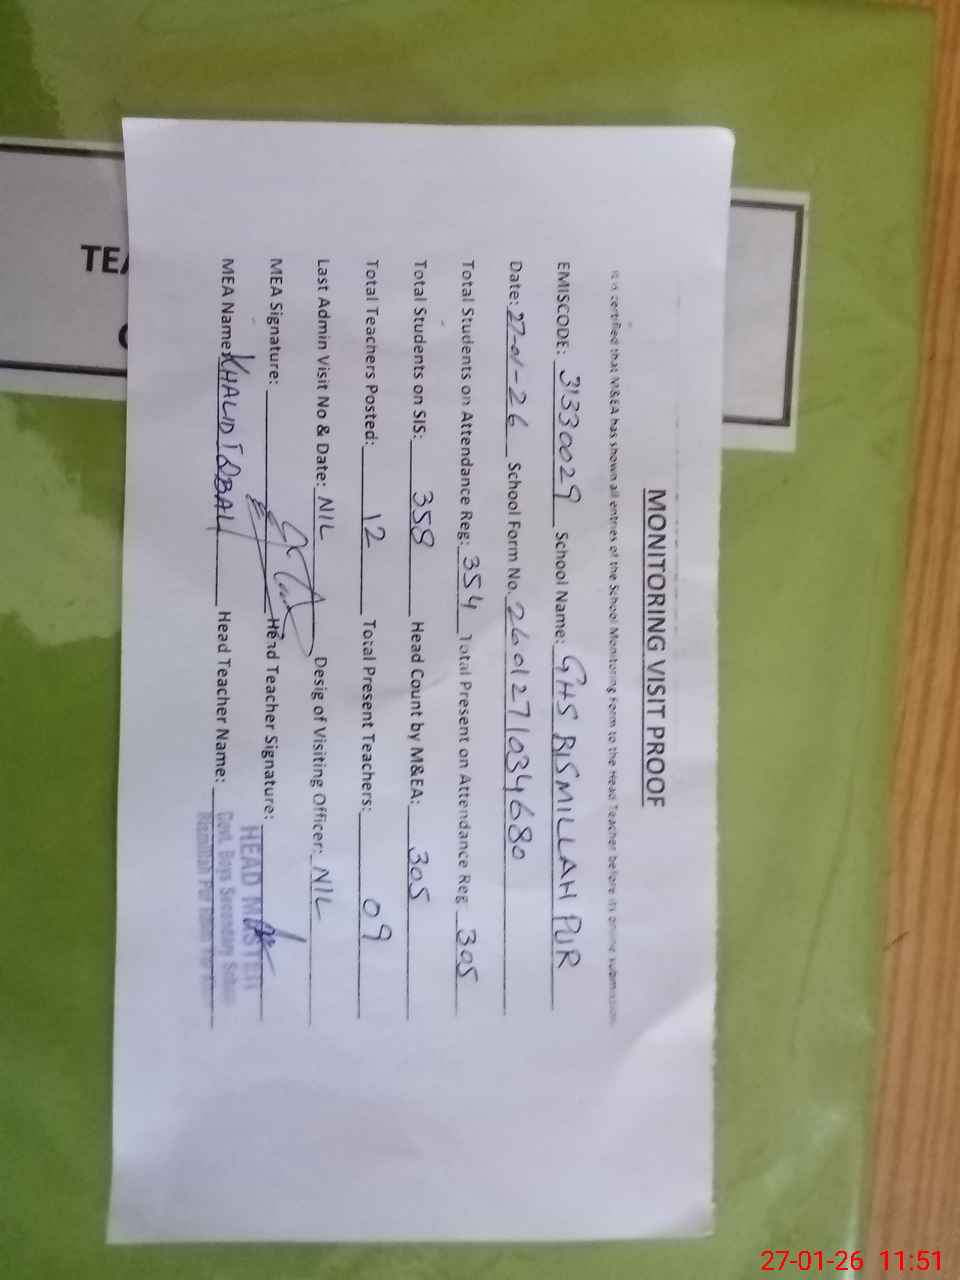 MONITORING VISIT PROOF
It is certified that M&EA has shown all entries of the School Monitoring Form to the Head Teacher before its online submission.
EMISCODE: 31330029 School Name: GHS BISMILLAH PUR
Date: 27-01-26 School Form No. 2601271034680
Total Students on Attendance Reg: 354 Total Present on Attendance Reg 305
Total Students on SIS: 358 Head Count by M&EA: 305
Total Teachers Posted: 12 Total Present Teachers: 09
Last Admin Visit No & Date: NIL Desig of Visiting Officer: NIL
MEA Signature: Head Teacher Signature:
MEA Name: KHALID IQBAL Head Teacher Name:
HEAD MASTER
Govt. Boys Secondary School
Bismillah Pur
TEA
27-01-26 11:51